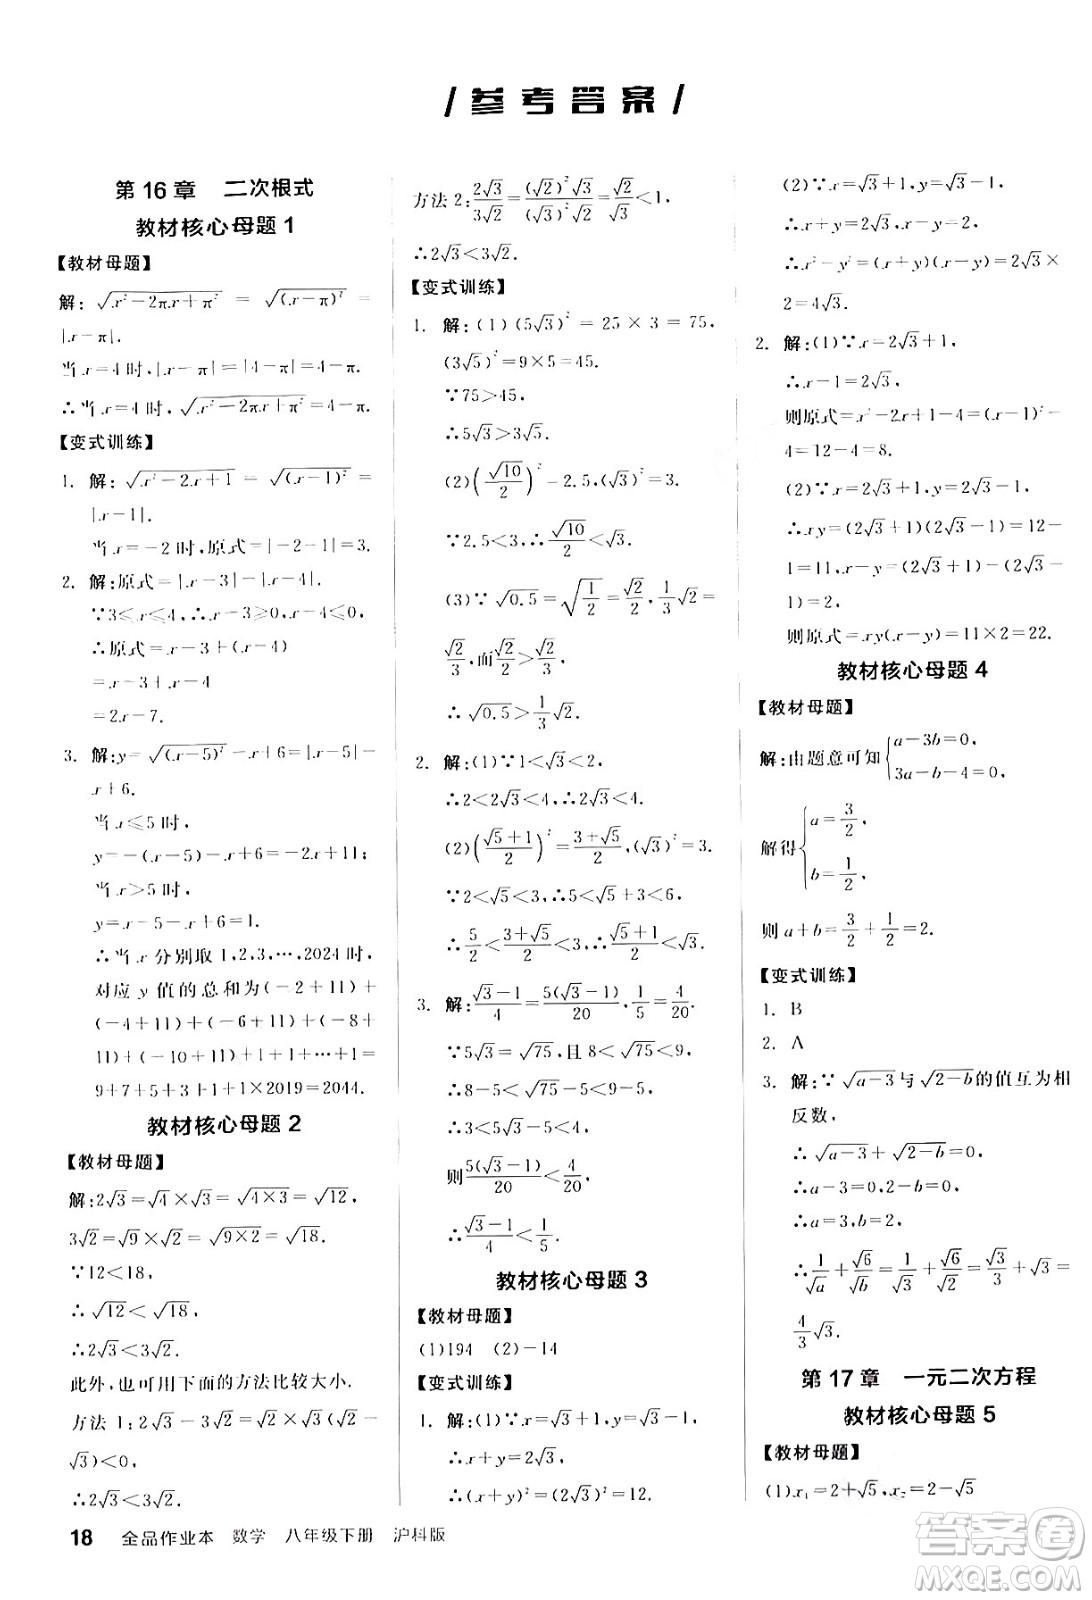 参考答案
第16章 二次根式
教材核心母题1
【教材母题】
解: √(x²-2πx+π²) = √((x-π)²) =
|x-π|.
当x=4时, |x-π|=|4-π|=4-π.
∴当x=4时, √(x²-2πx+π²)=4-π.
【变式训练】
1. 解: √(x²-2x+1) = √((x-1)²) =
|x-1|.
当x=-2时,原式=|-2-1|=3.
2. 解:原式=|x-3|-|x-4|.
∵3≤x≤4,∴x-3≥0,x-4≤0,
∴原式=x-3+(x-4)
=x-3+x-4
=2x-7.
3. 解:y=√((x-5)²)-x+6=|x-5|-
x+6.
当x≤5时,
y=-(x-5)-x+6=-2x+11;
当x>5时,
y=x-5-x+6=1.
∴当x分别取1,2,3,…,2024时,
对应y值的总和为(-2+11)+
(-4+11)+(-6+11)+(-8+
11)+(-10+11)+1+1+…+1=
9+7+5+3+1+1×2019=2044.
教材核心母题2
【教材母题】
解:2√3=√4×√3=√(4×3)=√12,
3√2=√9×√2=√(9×2)=√18.
∵12<18,
∴√12<√18,
∴2√3<3√2.
此外,也可用下面的方法比较大小.
方法1:2√3-3√2=√2×√3(√2-
√3)<0,
∴2√3<3√2.
方法2:2√3/3√2=(√2)²√3/(√3)²√2=√2/√3<1,
∴2√3<3√2.
【变式训练】
1. 解:(1)(5√3)²=25×3=75,
(3√5)²=9×5=45.
∵75>45,
∴5√3>3√5.
(2)(√10/2)²=2.5,(√3)²=3.
∵2.5<3,∴√10/2<√3.
(3)∵√0.5=√(1/2)=√2/2,1/3√2=
√2/3,而√2/2>√2/3,
∴√0.5>1/3√2.
2. 解:(1)∵1<√3<2,
∴2<2√3<4,∴2√3<4.
(2)((√5+1)/2)²=(3+√5)/2,(√3)²=3.
∵2<√5<3,∴5<√5+3<6,
∴5/2<(3+√5)/2<3,∴(√5+1)/2<√3.
3. 解:(√3-1)/4=5(√3-1)/20,1/5=4/20.
∵5√3=√75,且8<√75<9,
∴8-5<√75-5<9-5,
∴3<5√3-5<4,
则5(√3-1)/20<4/20,
∴(√3-1)/4<1/5.
教材核心母题3
【教材母题】
(1)194 (2)-14
【变式训练】
1. 解:(1)∵x=√3+1,y=√3-1,
∴x+y=2√3,
∴(x+y)²=(2√3)²=12.
(2)∵x=√3+1,y=√3-1,
∴x+y=2√3,x-y=2,
∴x²-y²=(x+y)(x-y)=2√3×
2=4√3.
2. 解:(1)∵x=2√3+1,
∴x-1=2√3,
则原式=x²-2x+1-4=(x-1)²-
4=12-4=8.
(2)∵x=2√3+1,y=2√3-1,
∴xy=(2√3+1)(2√3-1)=12-
1=11,x-y=(2√3+1)-(2√3-
1)=2,
则原式=xy(x-y)=11×2=22.
教材核心母题4
【教材母题】
解:由题意可知{a-3b=0, 3a-b-4=0,
解得{a=3/2, b=1/2,
则a+b=3/2+1/2=2.
【变式训练】
1. B
2. A
3. 解:∵√(a-3)与√(2-b)的值互为相
反数,
∴√(a-3)+√(2-b)=0,
∴a-3=0,2-b=0,
∴a=3,b=2,
∴1/√a+√6/√b=1/√3+√6/√2=√3/3+√3=
4/3√3.
第17章 一元二次方程
教材核心母题5
【教材母题】
(1)x₁=2+√5,x₂=2-√5
18 全品作业本 数学 八年级下册 沪科版
答案圈
MXQE.COM